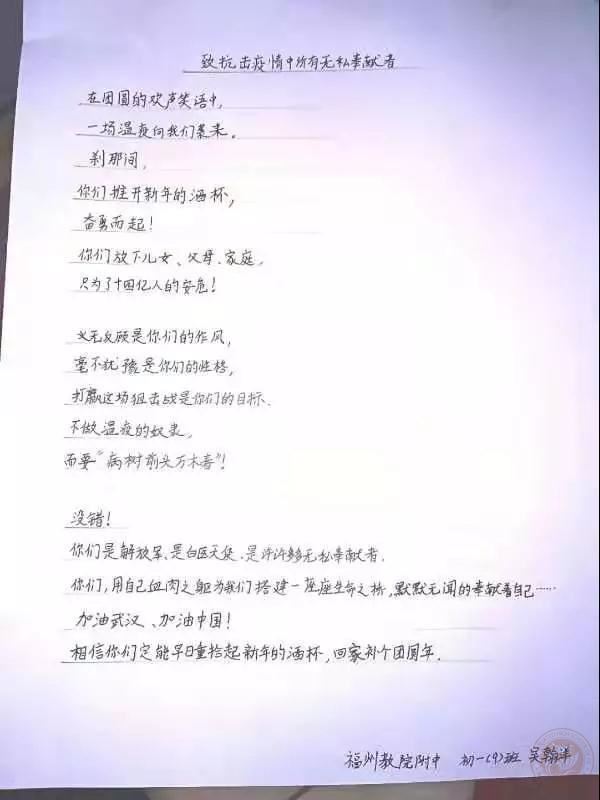 致抗击疫情中所有无私奉献者
在团圆的欢声笑语中,
一场温疫向我们袭来。
刹那间,
你们推开新年的酒杯,
奋勇而起!
你们放下儿女、父母、家庭,
只为了十四亿人的安危!
义无反顾是你们的作风,
毫不犹豫是你们的性格,
打赢这场狙击战是你们的目标.
不做温疫的奴隶,
而要“病树前头万木春”!
没错!
你们是解放军、是白医天使、是许许多无私奉献者.
你们,用自己血肉之躯为我们搭建一座座生命之桥,默默无闻的奉献着自己……
加油武汉、加油中国!
相信你们定能早日重拾起新年的酒杯,回家补个团圆年.
福州教院附中 初一(9)班 吴翰洋